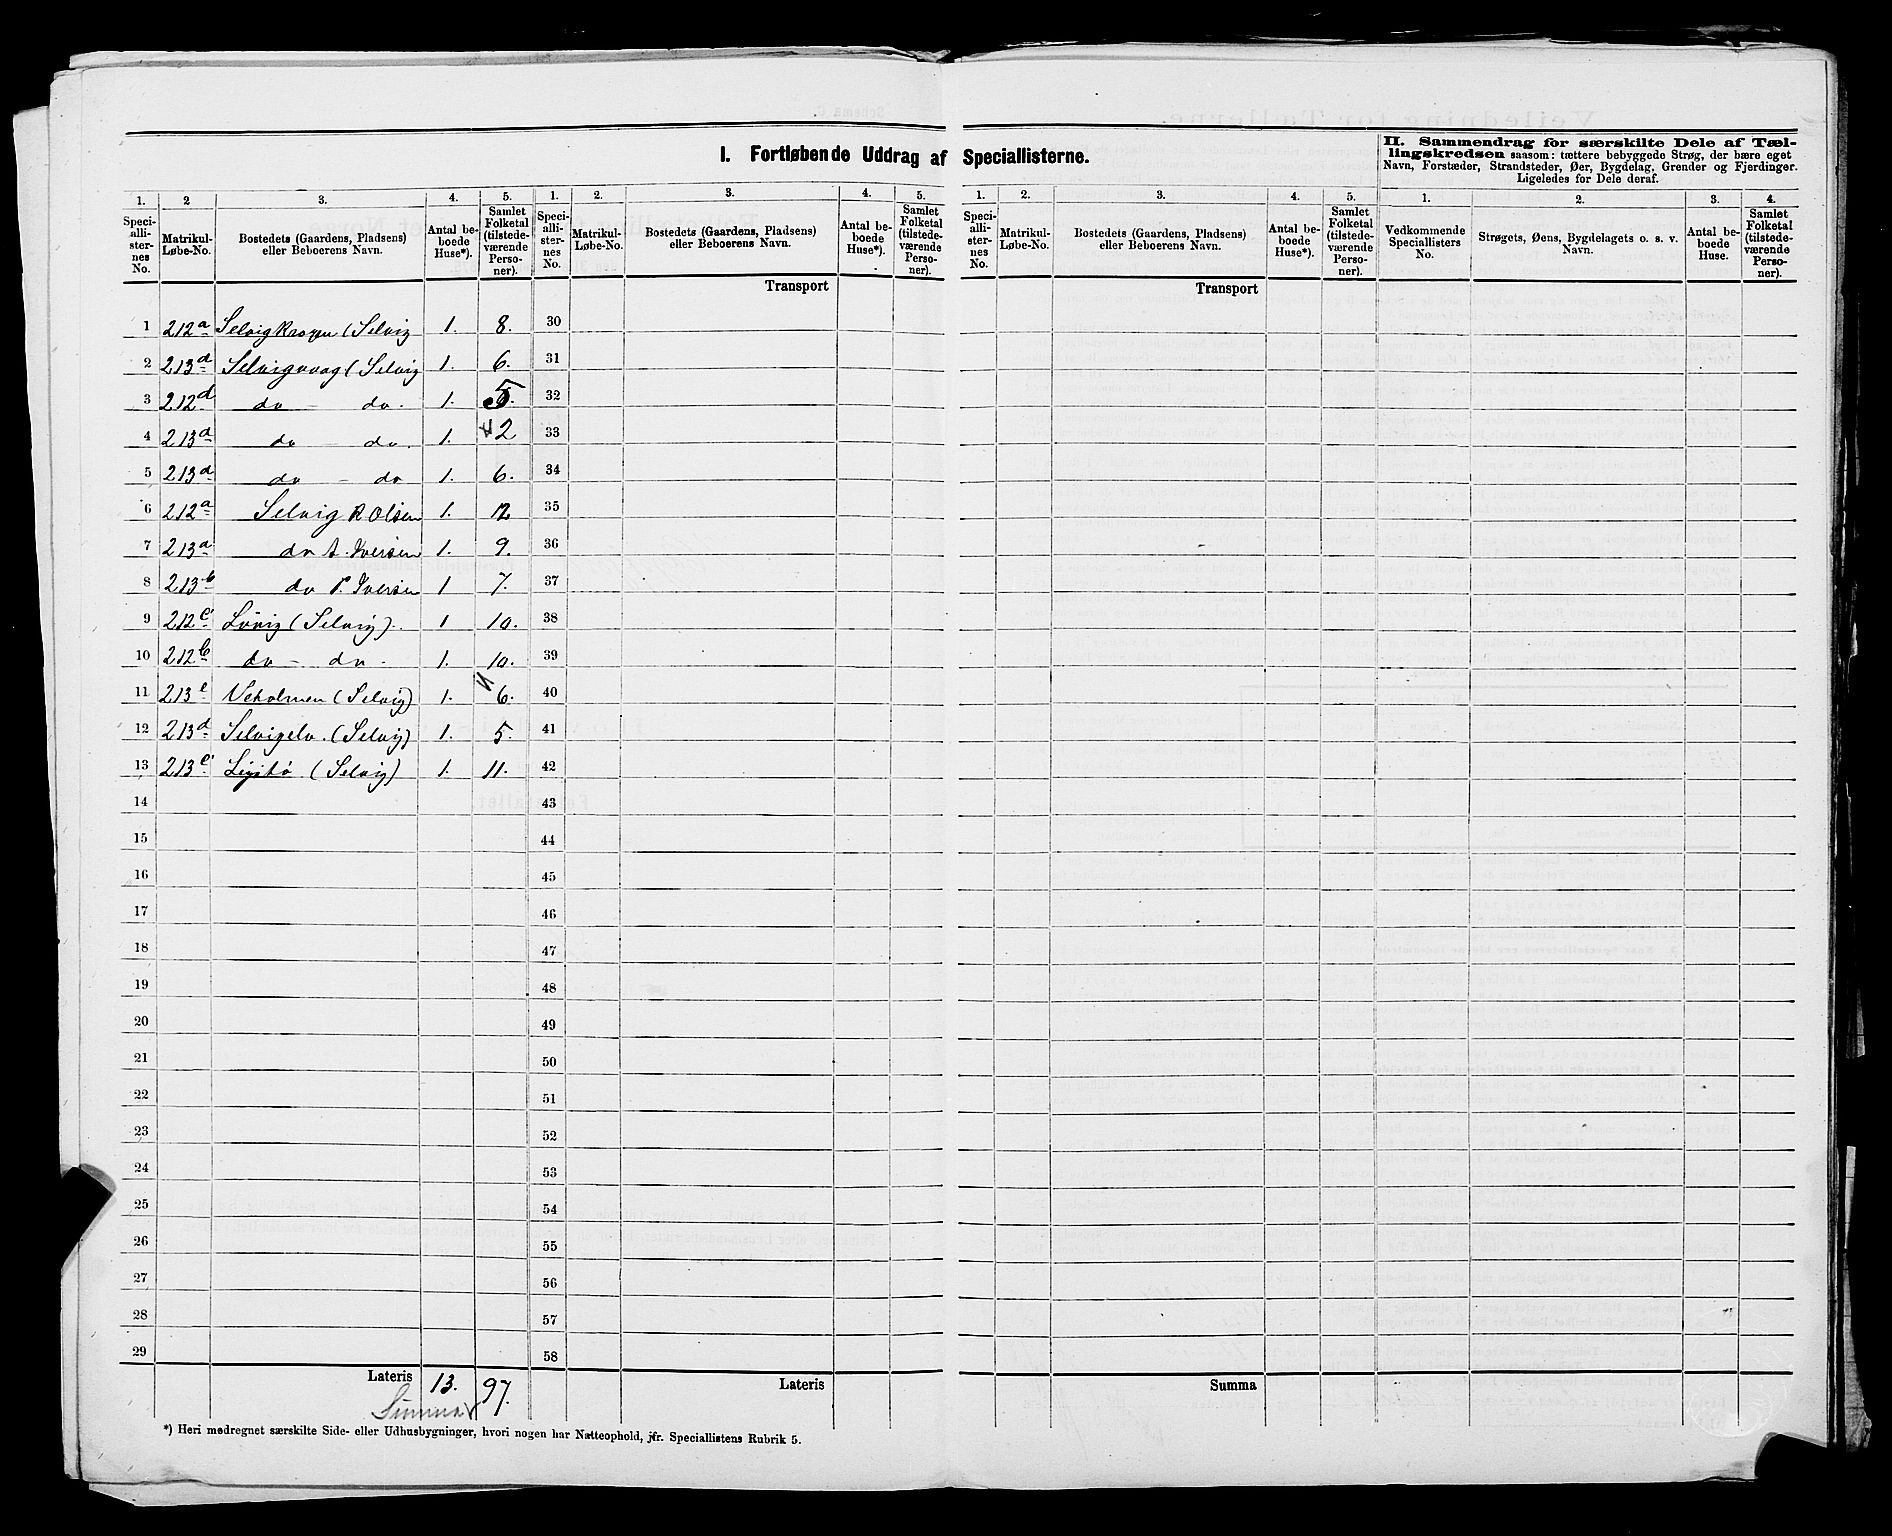 I. Fortløbende Uddrag af Speciallisterne.
II. Sammendrag for særskilte Dele af Tællingskredsen saasom: tættere bebyggede Strøg, der bære eget Navn, Forstæder, Strandsteder, Øer, Bygdelag, Grender og Fjerdinger. Ligeledes for Dele deraf.
1. 2 3. 4. 5. 1. 2. 3. 4. 5. 1. 2. 3. 4. 5. 1. 2. 3. 4.
Speciallisternes No. Matrikul-Løbe-No. Bostedets (Gaardens, Pladsens) eller Beboerens Navn. Antal beboede Huse*). Samlet Folketal (tilstedeværende Personer).
Speciallisternes No. Matrikul-Løbe-No. Bostedets (Gaardens, Pladsens) eller Beboerens Navn. Antal beboede Huse*). Samlet Folketal (tilstedeværende Personer).
Speciallisternes No. Matrikul-Løbe-No. Bostedets (Gaardens, Pladsens) eller Beboerens Navn. Antal beboede Huse*). Samlet Folketal (tilstedeværende Personer).
Vedkommende Speciallisters No. Strøgets, Øens, Bygdelagets o. s. v. Navn. Antal beboede Huse. Samlet Folketal (tilstedeværende Personer).
Transport Transport
1 212a (Selvig 1. 8. 30
2 213d Selvigvaag (Selvig 1. 6. 31
3 212d do do. 1. 5. 32
4 213a do - do. 1. 2 33
5 213d do - do 1. 6. 34
6 212a Selvig R Olsen 1. 12 35
7 213a do A. Iversen 1. 9. 36
8 213b do P. Iversen 1 7. 37
9 212c (Selvig). 1 10. 38
10 212b do - do. 1. 10. 39
11 213e Veholmen (Selvig) 1. 6. 40
12 213d Selvigelv. (Selvig) 1. 5. 41
13 213c (Selvig) 1. 11. 42
14 43
15 44
16 45
17 46
18 47
19 48
20 49
21 50
22 51
23 52
24 53
25 54
26 55
27 56
28 57
29 58
Lateris 13. 97. Lateris Summa
Summa
*) Heri medregnet særskilte Side- eller Udhusbygninger, hvori nogen har Natteophold, jfr. Speciallistens Rubrik 5.